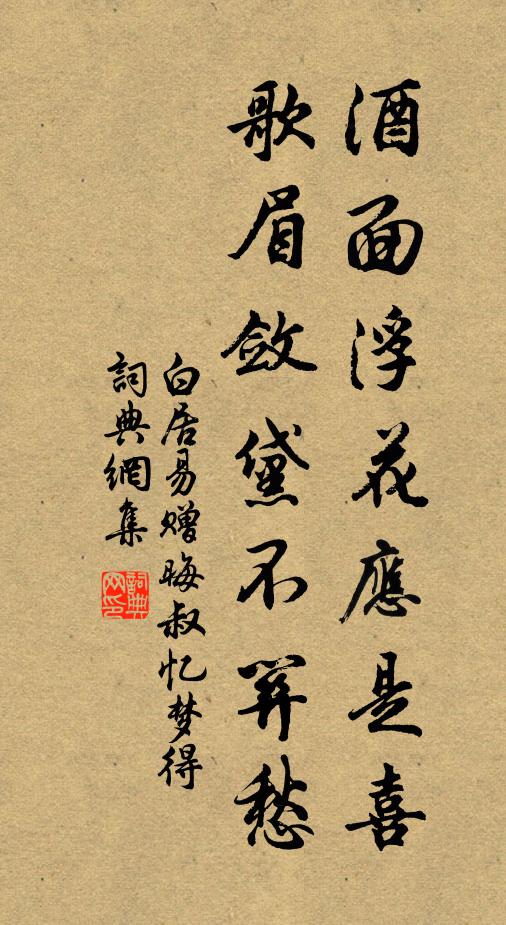 酒面浮花應是喜
歌眉斂黛不算愁
白居易赠晦叔忆梦得
詞典網集
詞典网印